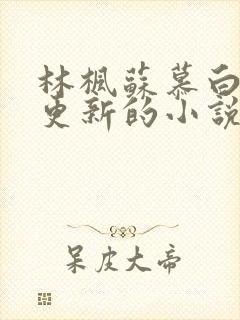 林楓蘇慕白
更新的小說
呆皮大帝